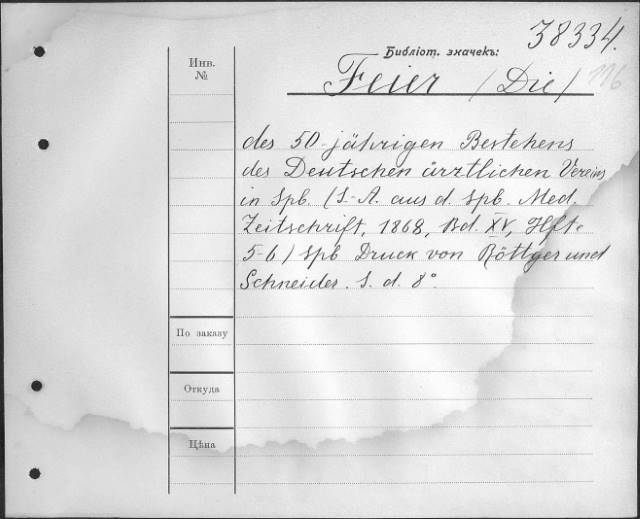 38334.
Библіот. значекъ:
Инв.
№
Feier / Die /
des 50-jährigen Bestehens
des Deutschen ärztlichen Vereins
in Spb. (S.-A. aus d. Spb. Med.
Zeitschrift, 1868, Bd. XV, Hft.
5-6) Spb Druck von Röttger und
Schneider. S. d. 8°.
По заказу
Откуда
Цѣна